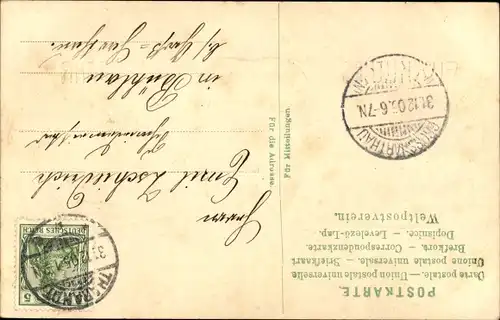 POSTKARTE.
Carte postale. — Union postale universelle
Unione postale universale. — Briefkaart
Brefkort. — Correspondenzkarte.
Dopisnice. — Levelező-Lap.
Weltpostverein.
Für Mitteilungen
Für die Adresse.
Herrn
Emil Zscheidrich
in Bühlau
b/ Groß=Harthau.
DEUTSCHES REICH
5
THARANDT
GROSSHARTHAU
31.12.05.6-7N.